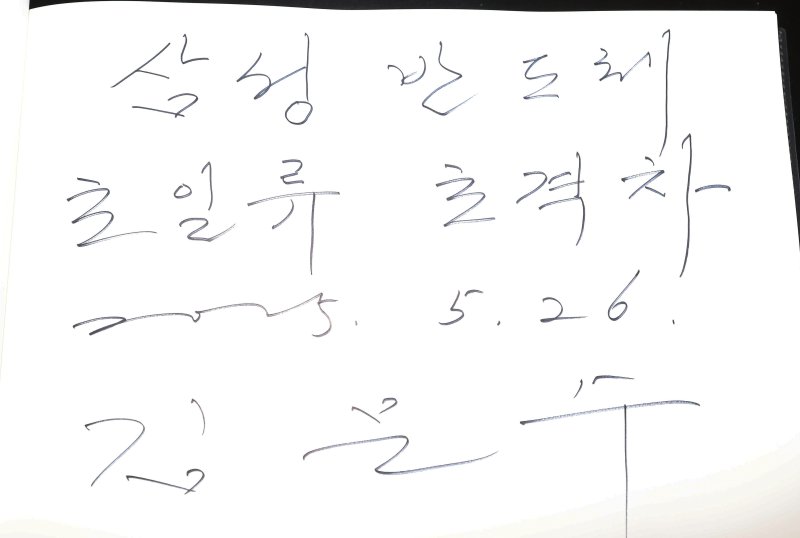 삼성 반도체
초일류 초격차
2025. 5. 26.
김 문 수